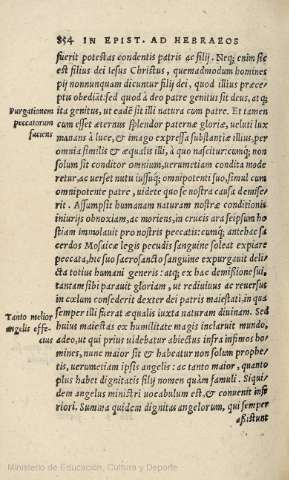 854 IN EPIST. AD HEBRAEOS
fuerit potestas condentis patris ac filij. Neq; enim sic
est filius dei Iesus Christus, quemadmodum homines
pij nonnunquam dicuntur filij dei, quod illius præce‐
ptis obediāt: sed quod à deo patre genitus sit deus, atq;
Purgationem
ita genitus, ut eadē sit illi natura cum patre. Et tamen
peccatorum
cum esset æternus splendor paternæ gloriæ, ueluti lux
faciens
manans à luce, & imago expressa substantiæ illius, per
omnia similis & æqualis illi, à quo nascitur: cumq; non
solum sit conditor omnium, uerumetiam condita mode
retur, ac uerset nutu iussuq; omnipotenti suo, simul cum
omnipotente patre, uidete quo se nostra causa demise‐
rit. Assumpsit humanam naturam nostræ conditionis
iniurijs obnoxiam, ac moriens, in crucis ara seipsum ho
stiam immolauit pro nostris peccatis: cumq; antehac sa
cerdos Mosaicæ legis pecudis sanguine soleat expiare
peccata, hic suo sacrosancto sanguine expurgauit deli‐
cta totius humani generis: atq; ex hac demissione sui,
tantam sibi parauit gloriam, ut rediuiuus ac reuersus
in cœlum consederit dexter dei patris maiestati, in qua
semper illi fuerat æqualis iuxta naturam diuinam. Sed
Tanto melior
huius maiestas ex humilitate magis inclaruit mundo,
angelis effe‐
ctus
adeo, ut qui prius uidebatur abiectus infra infimos ho
mines, nunc maior sit & habeatur non solum prophe‐
tis, uerumetiam ipsis angelis: ac tanto maior, quanto
plus habet dignitatis filij nomen quàm famuli. Siqui‐
dem angelus ministri uocabulum est, & conuenit infe
riori. Summa quidem dignitas angelorum, qui semper
assistunt
Ministerio de Educación, Cultura y Deporte